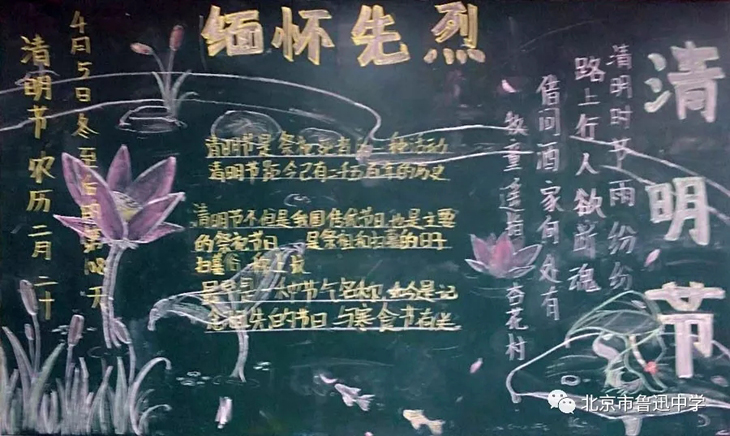 缅怀先烈
清明节
清明时节雨纷纷
路上行人欲断魂
借问酒家何处有
牧童遥指杏花村
4月5日冬至后的第108天
清明节 农历二月二十
清明节是祭祀死者的一种活动
清明节距今已有二千五百年的历史
清明节不但是我国传统节日也是主要
的祭祀节日 是祭祖和扫墓的日子
扫墓俗称上坟
是 一种节气名称 如今是记
念祖先的节日 与寒食节有关
北京市鲁迅中学